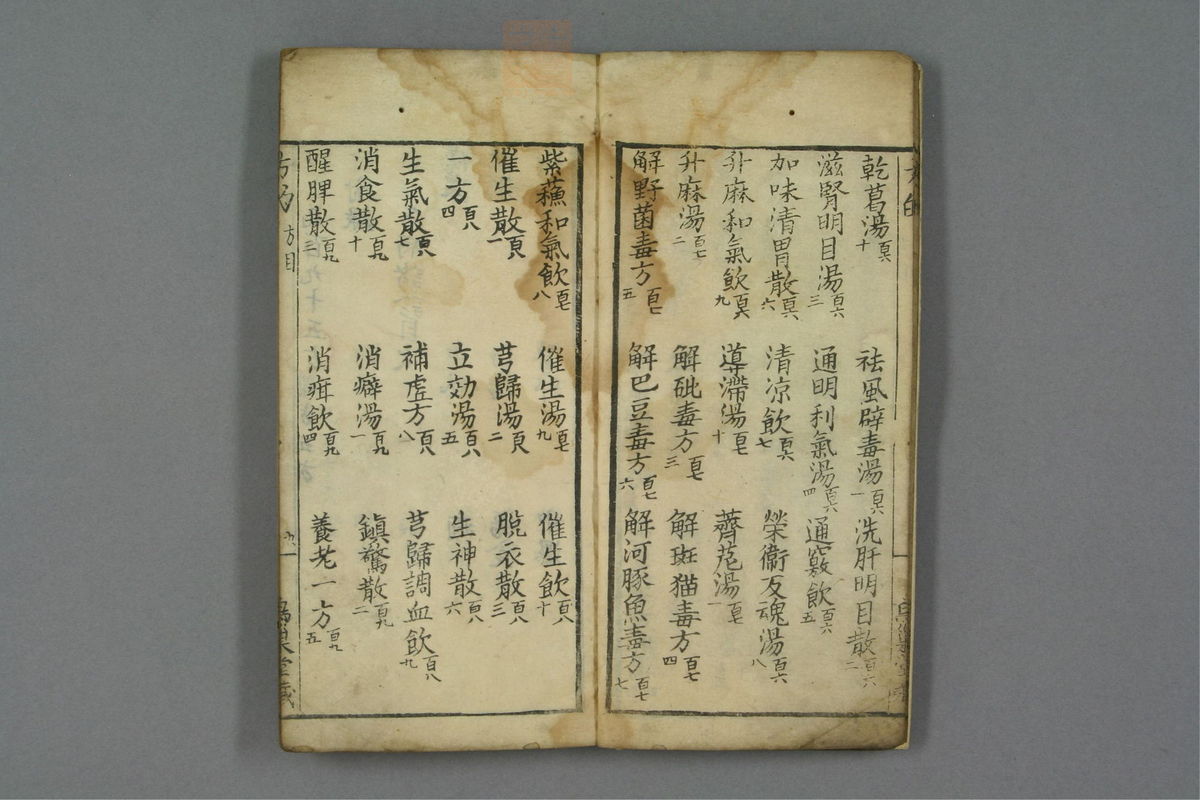 乾葛湯百六十　祛風辟毒湯百六一　洗肝明目散百六二
滋腎明目湯百六三　通明利氣湯百六四　通竅飲百六五
加味清胃散百六六　清凉飲百六七　榮衛反魂湯百六八
升麻和氣飲百六九　導滯湯百七十　薺苨湯百七一
升麻湯百七二　解砒毒方百七三　解斑猫毒方百七四
解野菌毒方百七五　解巴豆毒方百七六　解河豚魚毒方百七七
紫蘓和氣飲百七八　催生湯百七九　催生飲百八十
催生散百八一　芎歸湯百八二　脫衣散百八三
一方百八四　立効湯百八五　生神散百八六
生氣散百八七　補虛方百八八　芎歸調血飲百八九
消食散百九十　消癖湯百九一　鎮驚散百九二
醒脾散百九三　消疳飲百九四　養老一方百九五
方目